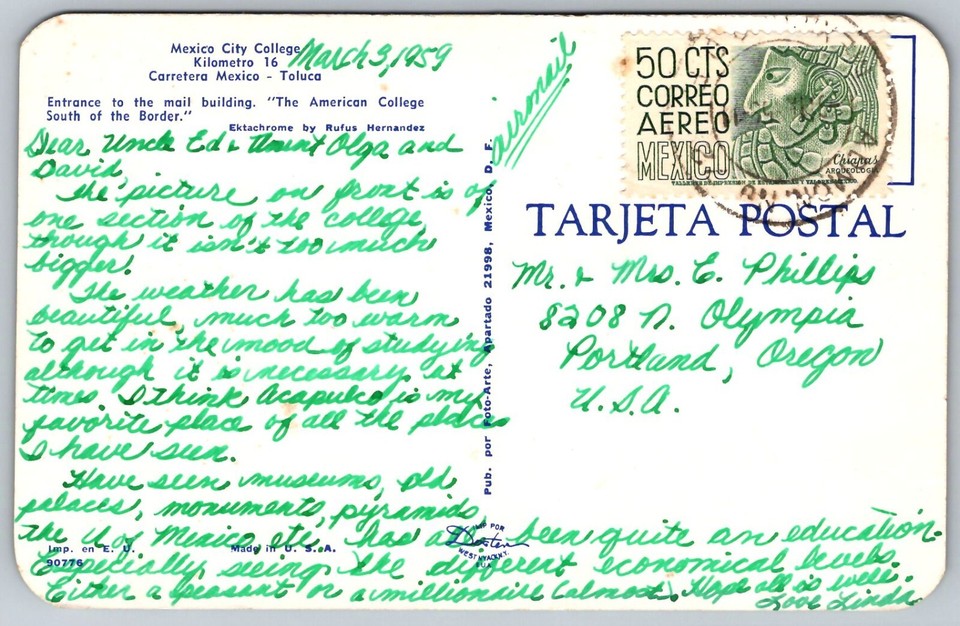 Mexico City College
Kilometro 16
Carretera Mexico - Toluca
March 3, 1959
Entrance to the mail building. "The American College
South of the Border."
Ektachrome by Rufus Hernandez
Dear Uncle Ed & Aunt Olga and
David,
The picture on front is of
one section of the college,
though it isn't too much
bigger!
The weather has been
beautiful, much too warm
to get in the mood of studying
although it is necessary at
times. I think Acapulco is my
favorite place of all the places
I have seen.
Have seen museums, old
palaces, monuments, pyramids,
the U of Mexico, etc. has been quite an education.
Especially seeing the different economical levels.
Either a peasant or a millionaire (almost). Hope all is well.
Love Linda
Imp. en E. U.
Made in U. S. A.
90776
Pub. por Foto-Arte, Apartado 21998, Mexico, D. F.
IMP POR
Dexter
WEST NYACK, N.Y.
U.S.A.
airmail
50 CTS
CORREO
AEREO
MEXICO
Chiapas
ARQUEOLOGIA
TALLERES DE IMPRESION DE ESTAMPILLAS Y VALORES MEXICO
TARJETA POSTAL
Mr. & Mrs. E. Phillips
8208 N. Olympia
Portland, Oregon
U.S.A.